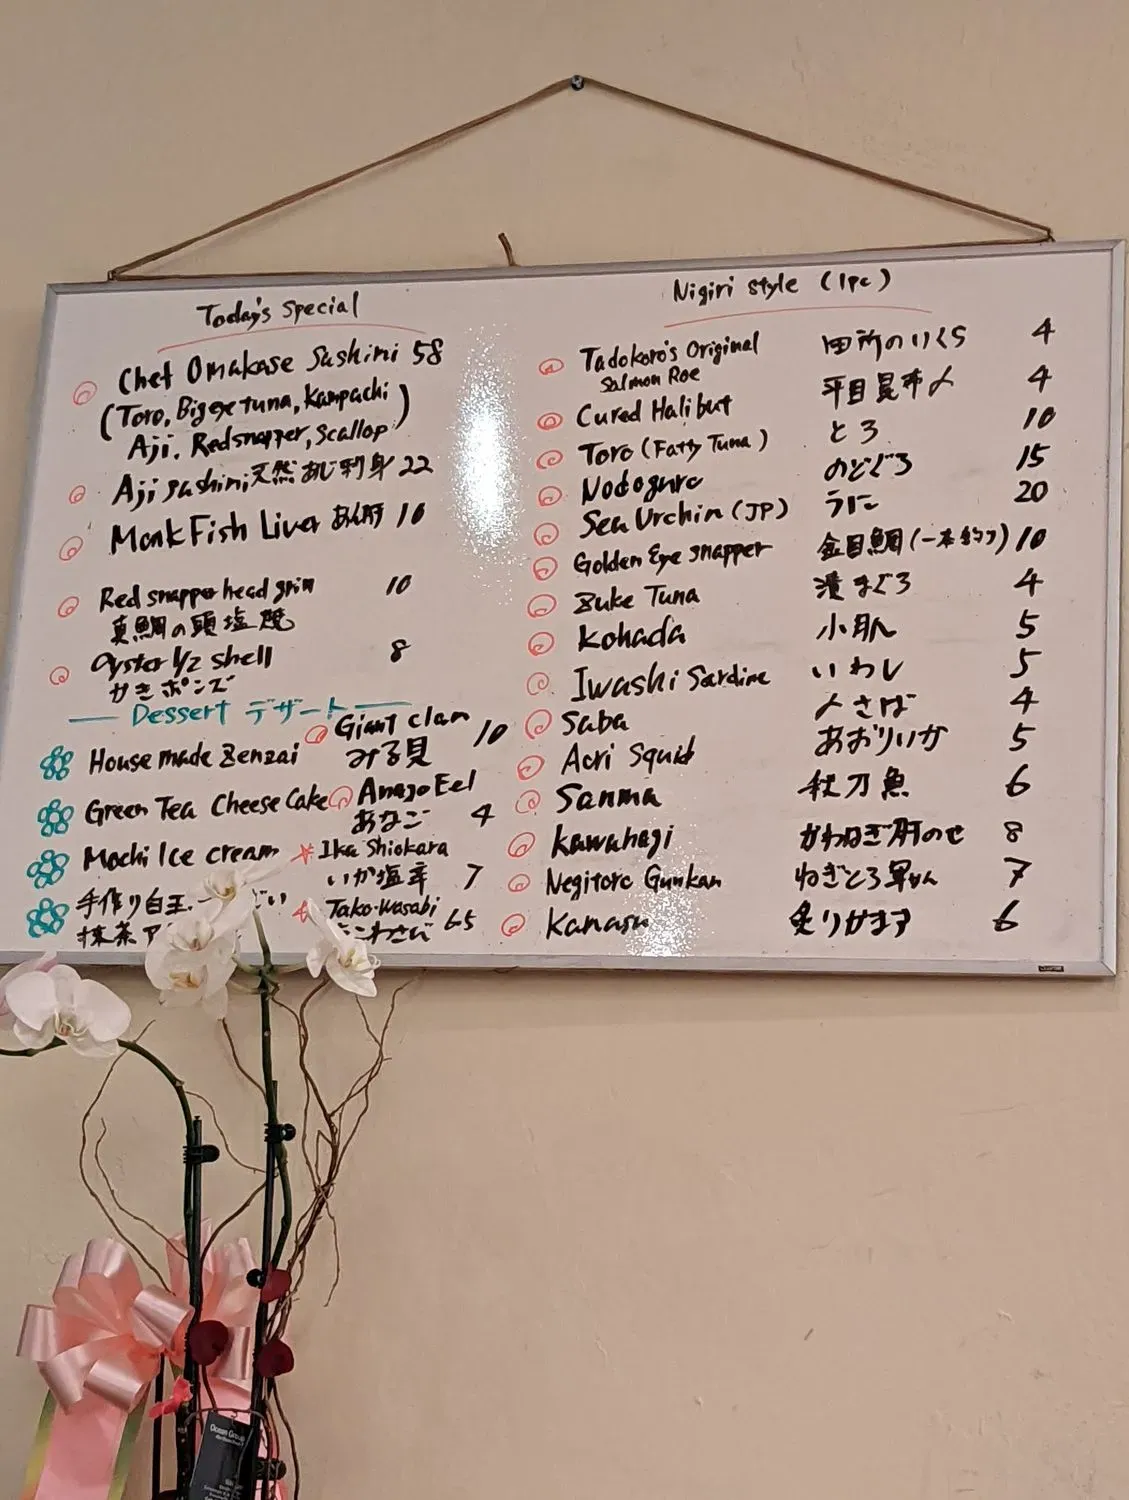 Today's Special
Chef Omakase Sashimi 58
(Toro, Bigeye tuna, Kampachi
Aji, Redsnapper, Scallop)
Aji sashimi 天然あじ刺身 22
Monk Fish Liver あん肝 10
Red snapper head grill 10
真鯛の頭塩焼
Oyster 1/2 shell 8
かきポンズ
Dessert デザート
House made Zenzai
Green Tea Cheese Cake
Mochi Ice cream
手作り白玉
抹茶
Giant clam 10
みる貝
Anago Eel
あなご 4
Ika Shiokara
いか塩辛 7
Tako-Wasabi
たこわさび 6.5
Nigiri style (1pc)
Tadokoro's Original 田所のいくら 4
Salmon Roe
Cured Halibut 平目昆布〆 4
Toro (Fatty Tuna) とろ 10
Nodoguro のどぐろ 15
Sea Urchin (JP) うに 20
Golden Eye snapper 金目鯛(一本釣り) 10
Zuke Tuna 漬まぐろ 4
Kohada 小肌 5
Iwashi Sardine いわし 5
Saba 〆さば 4
Aori Squid あおりいか 5
Sanma 秋刀魚 6
Kawahagi かわはぎ肝のせ 8
Negitoro Gunkan ねぎとろ軍かん 7
Kamasu 炙りかます 6
Ocean Group